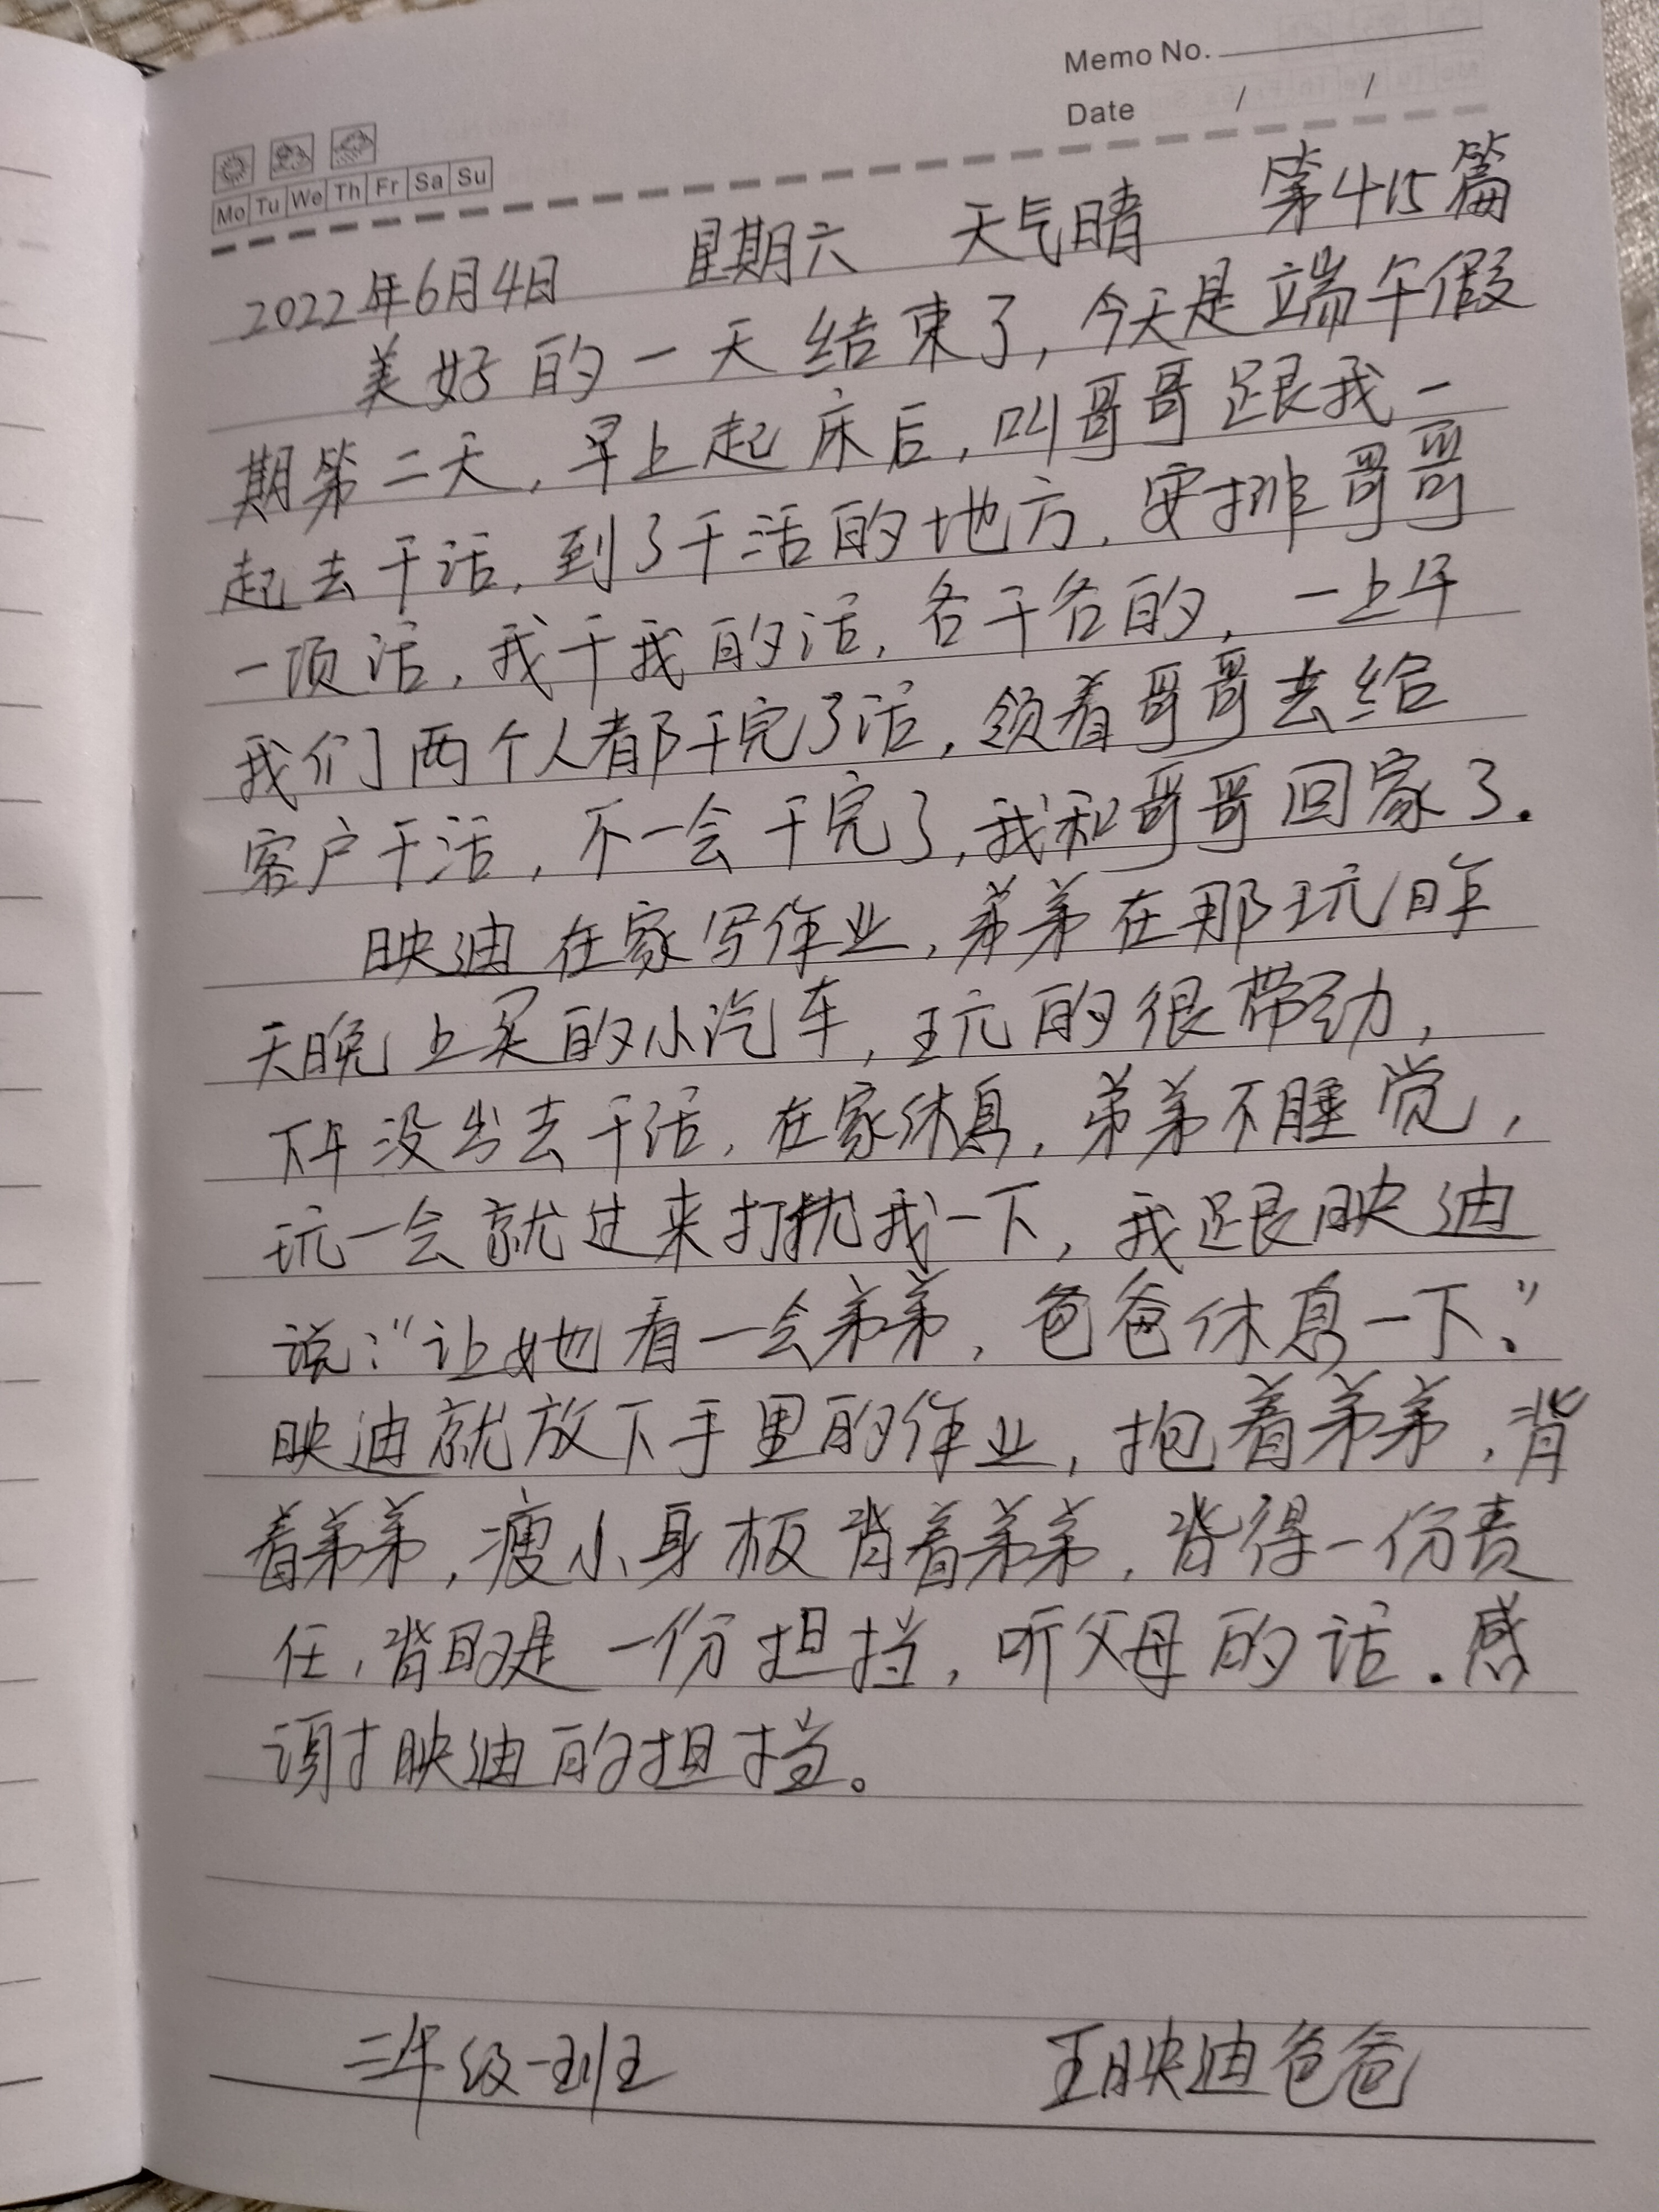 Memo No.
Date / /
Mo Tu We Th Fr Sa Su
2022年6月4日 星期六 天气晴 第415篇
美好的一天结束了,今天是端午假
期第二天,早上起床后,叫哥哥跟我一
起去干活,到了干活的地方,安排哥哥
一项活,我干我的活,各干各的,一上午
我们两个人都干完了活,领着哥哥去给
客户干活,不一会干完了,我和哥哥回家了.
映迪在家写作业,弟弟在那玩昨
天晚上买的小汽车,玩的很带劲,
下午没出去干活,在家休息,弟弟不睡觉,
玩一会就过来打扰我一下,我跟映迪
说:“让她看一会弟弟,爸爸休息一下.”
映迪就放下手里的作业,抱着弟弟,背
着弟弟,瘦小身板背着弟弟,背得一份责
任,背的是一份担挡,听父母的话.感
谢映迪的担挡。
三年级一班 王映迪爸爸